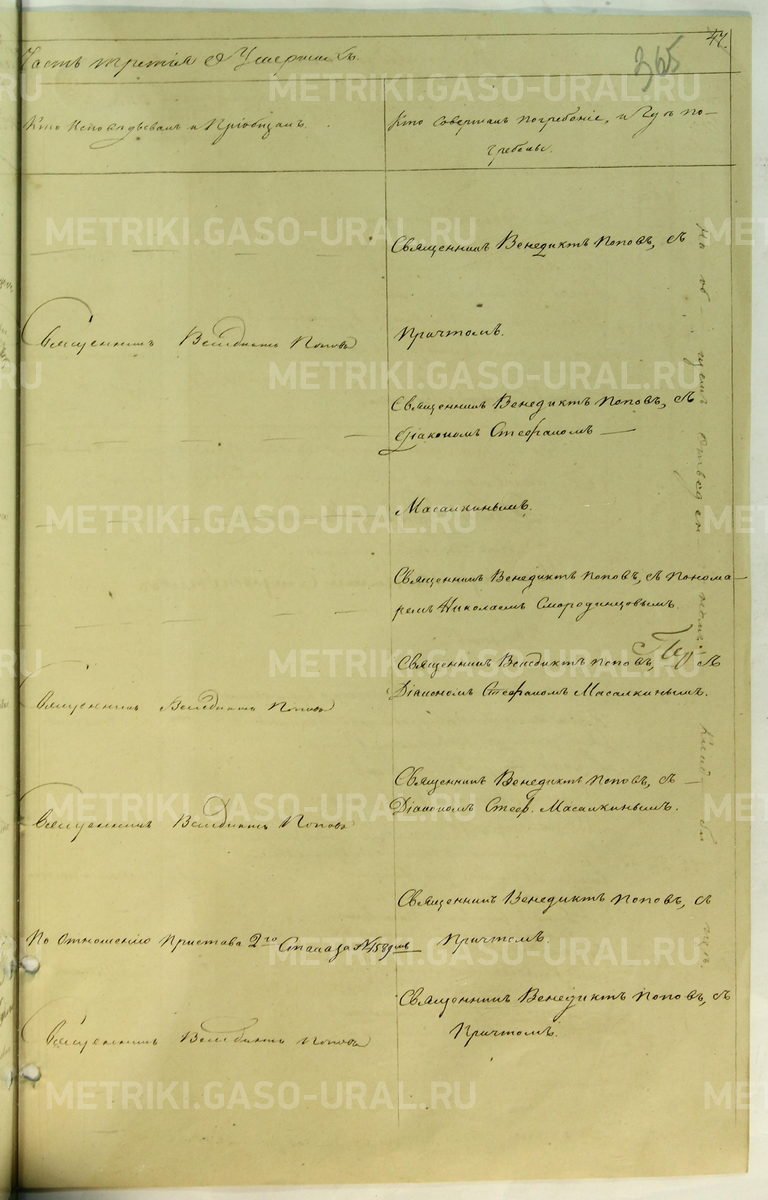 47.
365
Часть третія о Умершихъ.
Кто Исповѣдывалъ и Пріобщалъ.
Кто совершалъ погребеніе, и Гдѣ по-
гребены.
Священникъ Венедиктъ Поповъ, съ
Священникъ Венедиктъ Поповъ
Причтомъ.
Священникъ Венедиктъ Поповъ, съ
Діакономъ Стефаномъ —
Масалкинымъ.
Священникъ Венедиктъ Поповъ, съ Понома-
ремъ Николаемъ Смородинцовымъ.
Священникъ Венедиктъ Поповъ, съ
Діакономъ Стефаномъ Масалкинымъ.
Священникъ Венедиктъ Поповъ
Священникъ Венедиктъ Поповъ, съ
Діакономъ Стеф. Масалкинымъ.
Священникъ Венедиктъ Поповъ
Священникъ Венедиктъ Поповъ, съ
Причтомъ.
По Отношенію Пристава 2го Стана за №
Священникъ Венедиктъ Поповъ, съ
Причтомъ.
Священникъ Венедиктъ Поповъ
отведен
METRIKI.GASO-URAL.RU